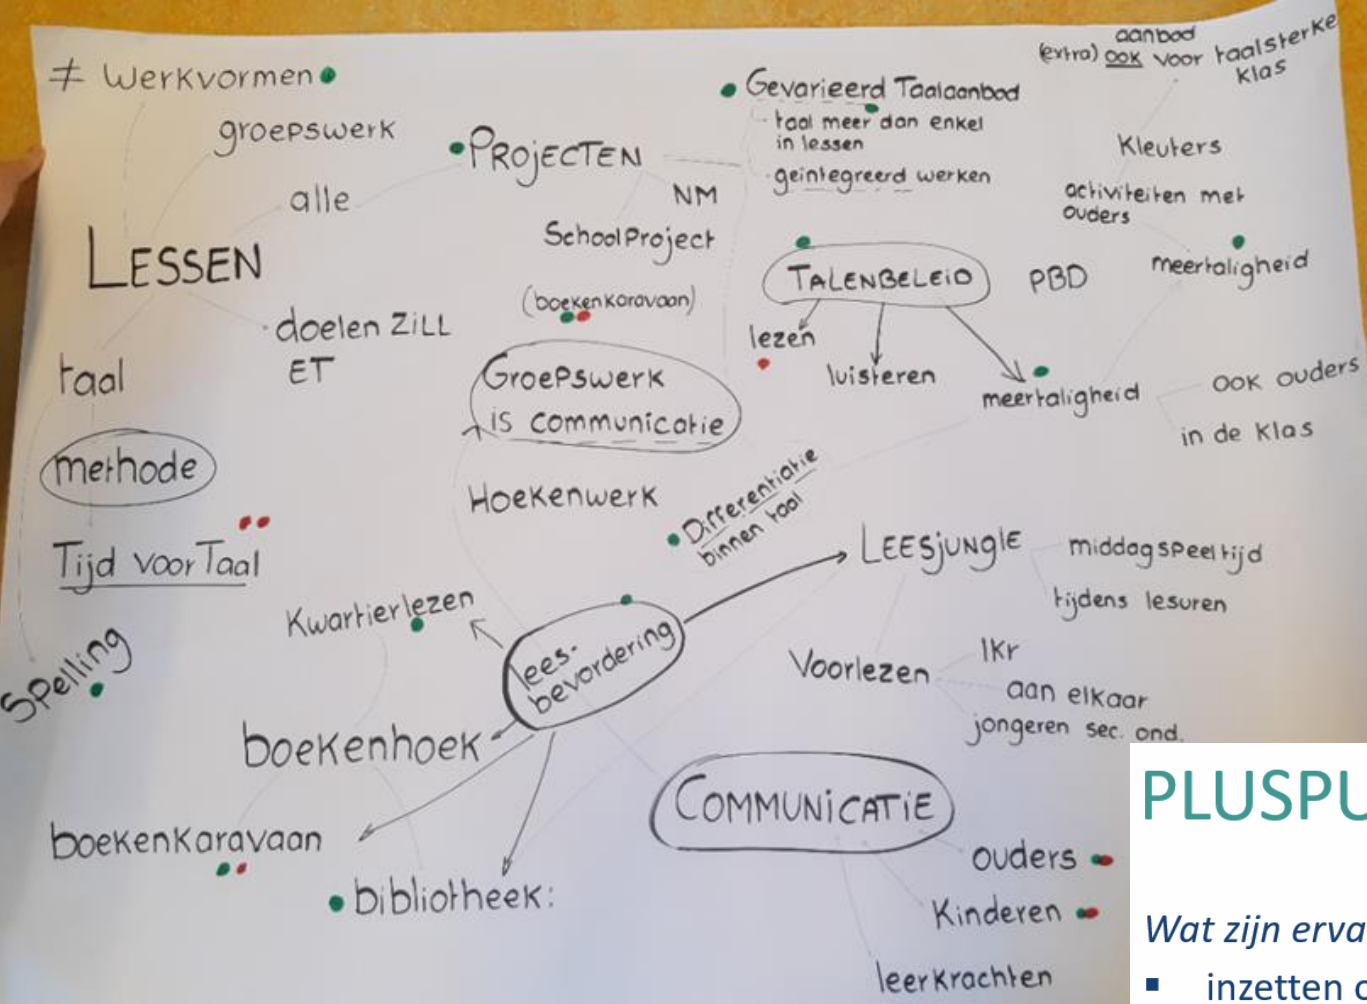 ≠ Werkvormen
groepswerk
alle
LESSEN
doelen ZiLL
ET
taal
methode
Tijd voor Taal
Spelling
PROJECTEN
NM
SchoolProject
(boekenkaravaan)
Groepswerk
is communicatie
Hoekenwerk
Gevarieerd Taalaanbod
- taal meer dan enkel
in lessen
- geintegreerd werken
aanbod
(extra) ook voor taalsterke
klas
Kleuters
activiteiten met
ouders
meertaligheid
TALENBELEID
PBD
lezen
luisteren
meertaligheid
ook ouders
in de klas
Differentiatie
binnen taal
LEESjUNGLE
middagspeeltijd
tijdens lesuren
Voorlezen
lkr
aan elkaar
jongeren sec. ond.
lees-
bevordering
Kwartierlezen
boekenhoek
boekenkaravaan
bibliotheek:
COMMUNiCATiE
ouders
Kinderen
leerkrachten
PLUSPU
Wat zijn erva
▪ inzetten o